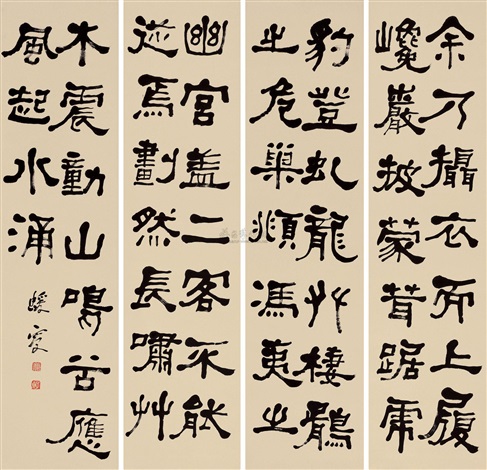 余乃攝衣而上履
巉巖披蒙茸踞虎
豹登虬龍艸棲鶻
之危巢頫馮夷之
幽宮蓋二客不能
從焉劃然長嘯艸
木震動山鳴谷應
風起水涌